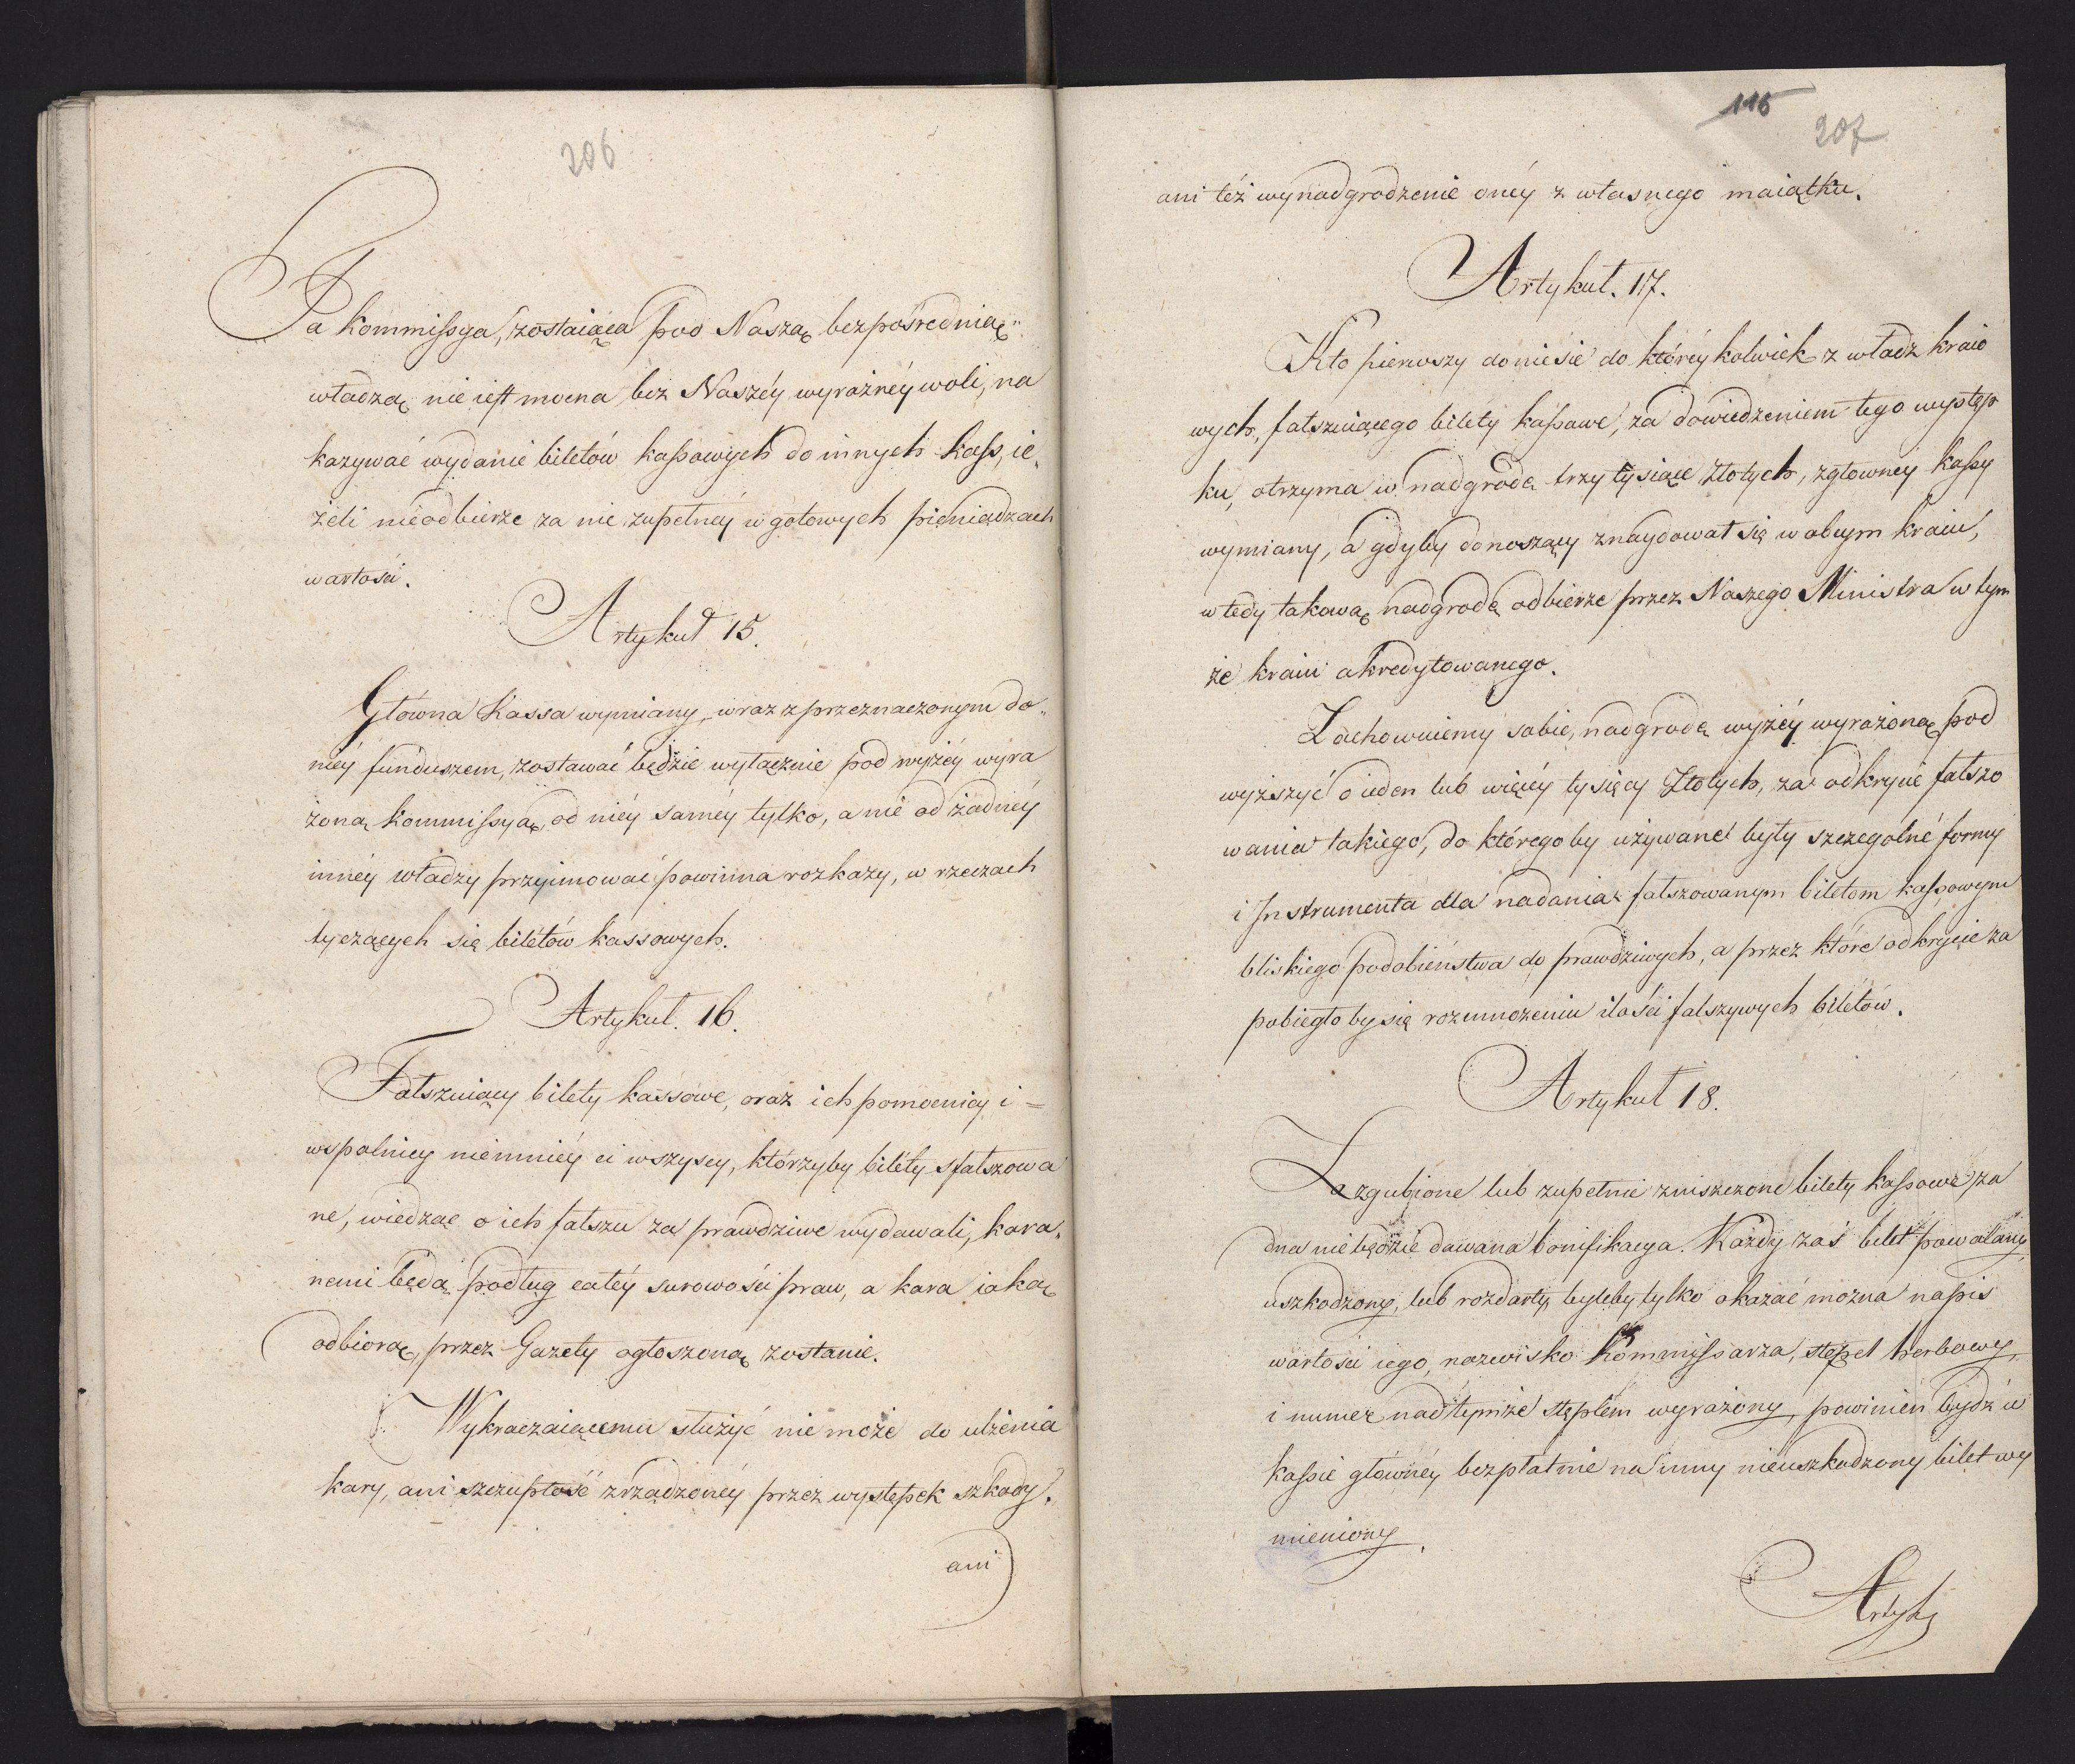 206
Ta kommissya, zostaiąca pod Naszą bezpośrednią
władzą nie iest mocna bez Naszéy wyraźnéy woli, na
kazywać wydanie biletów kassowych do innych kass, ie,
żeli nieodbierze za nie zupełnéy w gotowych pieniądzach
wartości.
Artykuł 15.
Główna Kassa wymiany, wraz z przeznaczonym do„
niéy funduszem, zostawać będzie wyłącznie pod wyżéy wyra
żoną kommissyą, od niéy saméy tylko, a nie od żadnéy
innéy władzy przyimować powinna rozkazy, w rzeczach
tyczących się biletów kassowych.
Artykuł. 16.
Fałszuiący bilety kassowe, oraz ich pomocnicy i =
wspolnicy niemniéy ci wszyscy, którzyby bilety sfałszowa
ne, wiedząc o ich fałszu za prawdziwe wydawali, kara„
nemi będą podług całéy surowości praw, a kara iaką
odbiorą, przez Gazety ogłoszoną zostanie.
Wykraczaiącemu służyć nie może do ulżenia
kary, ani szczupłość zrządzonéy przez występek szkody,
ani
116
207
ani téż wynadgrodzenie onéy z własnego maiątku.
Artykuł. 17.
Kto pierwszy doniesie do któréykolwiek z władz kraio
wych, fałszuiącego bilety kassowe, za dowiedzeniem tego występ
ku, otrzyma w nadgrodę trzy tysiące Złotych, z główney kassy
wymiany, a gdyby donoszący znaydował się w obcym kraiu,
wtedy takową nadgrodę odbierze przez Naszego Ministra w tym
że kraiu akredytowanego.
Zachowuiemy sobie, nadgrodę wyżéy wyrażoną pod
wyższyć o ieden lub więcéy tysięcy Złotych, za odkrycie fałszo
wania takiego, do którego by używane były szczegolné formy
i Instrumenta dla nadania fałszowanym biletom kassowym
bliskiego podobieństwa do prawdziwych, a przez które odkrycie za
pobiegło by się rozmnożeniu ilości fałszywych biletów.
Artykuł 18.
Za zgubione lub zupełnie zniszczone bilety kassowe ża
dna nie będzie dawana bonifikacya. Każdy zaś bilet powalany,
uszkodzony, lub rozdarty, byleby tylko okazać można napis
wartości iego, nazwisko Kommissarza, stępel herbowy,
i numer nad tymże stęplem wyrażony, powinien bydź w
kassie główney bezpłatnie na inny nieuszkodzony bilet wy
mieniony.
Artyk